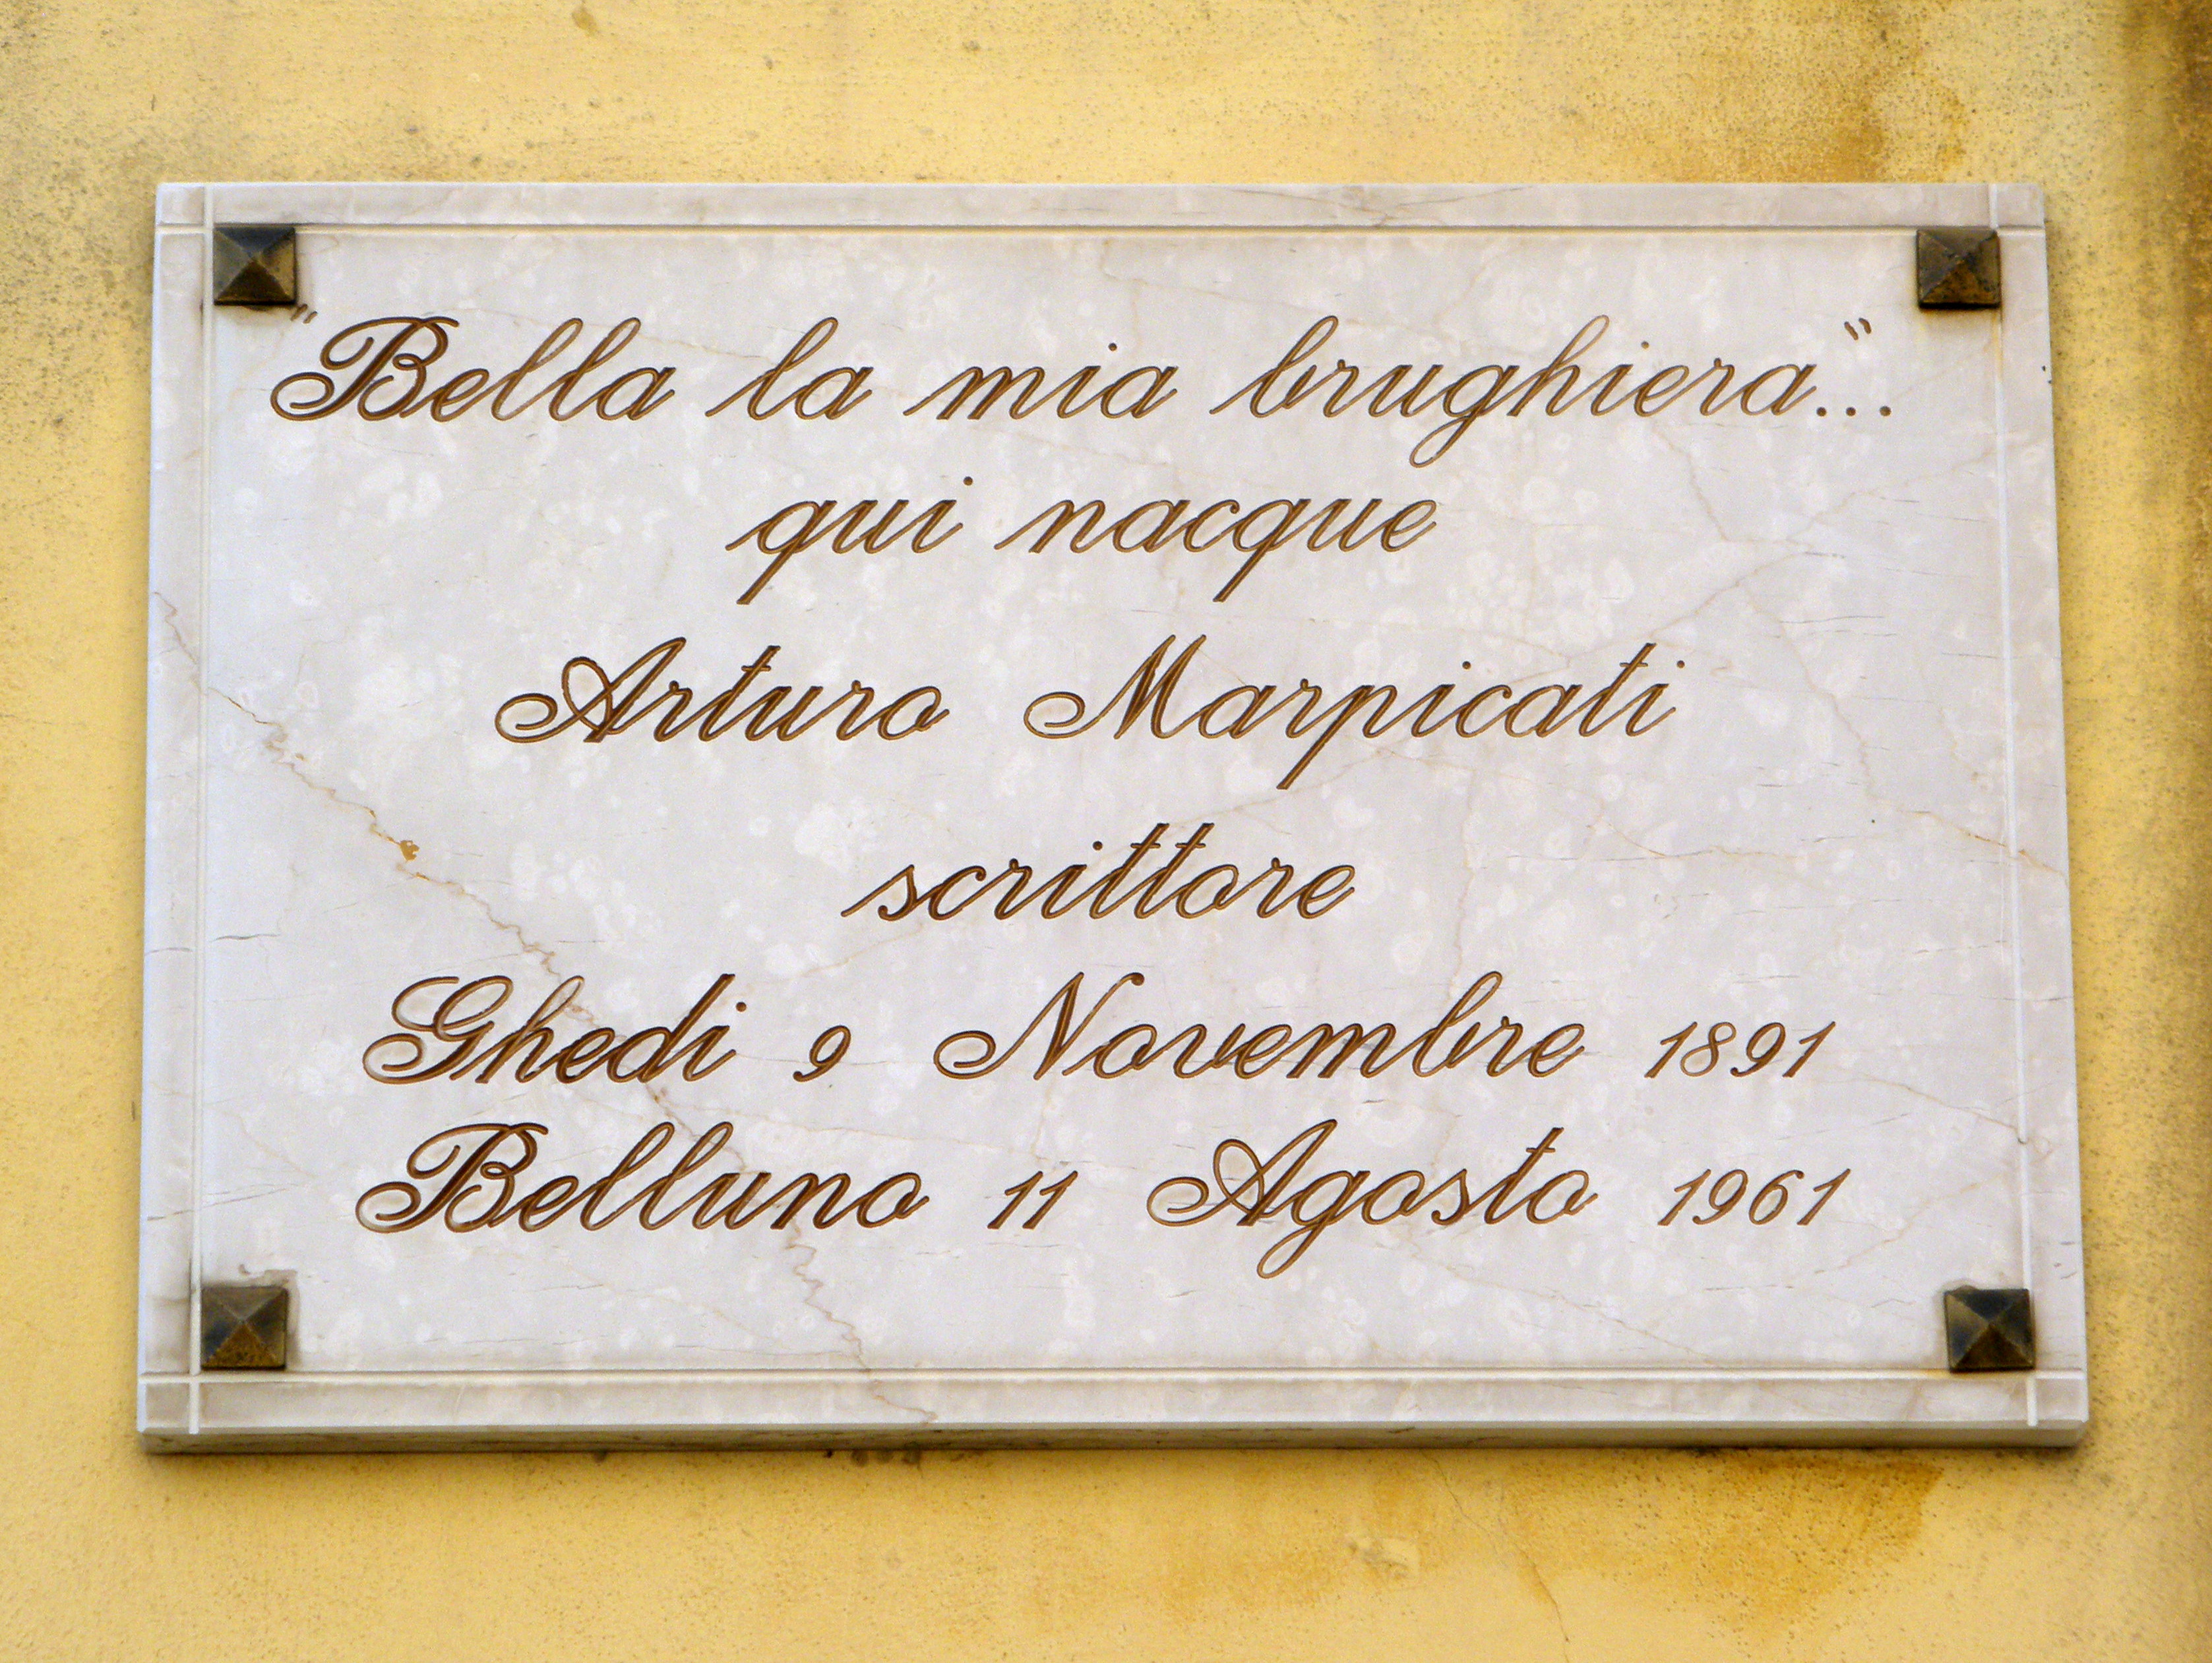 "Bella la mia brughiera..."
qui nacque
Arturo Marpicati
scrittore
Ghedi 9 Novembre 1891
Belluno 11 Agosto 1961